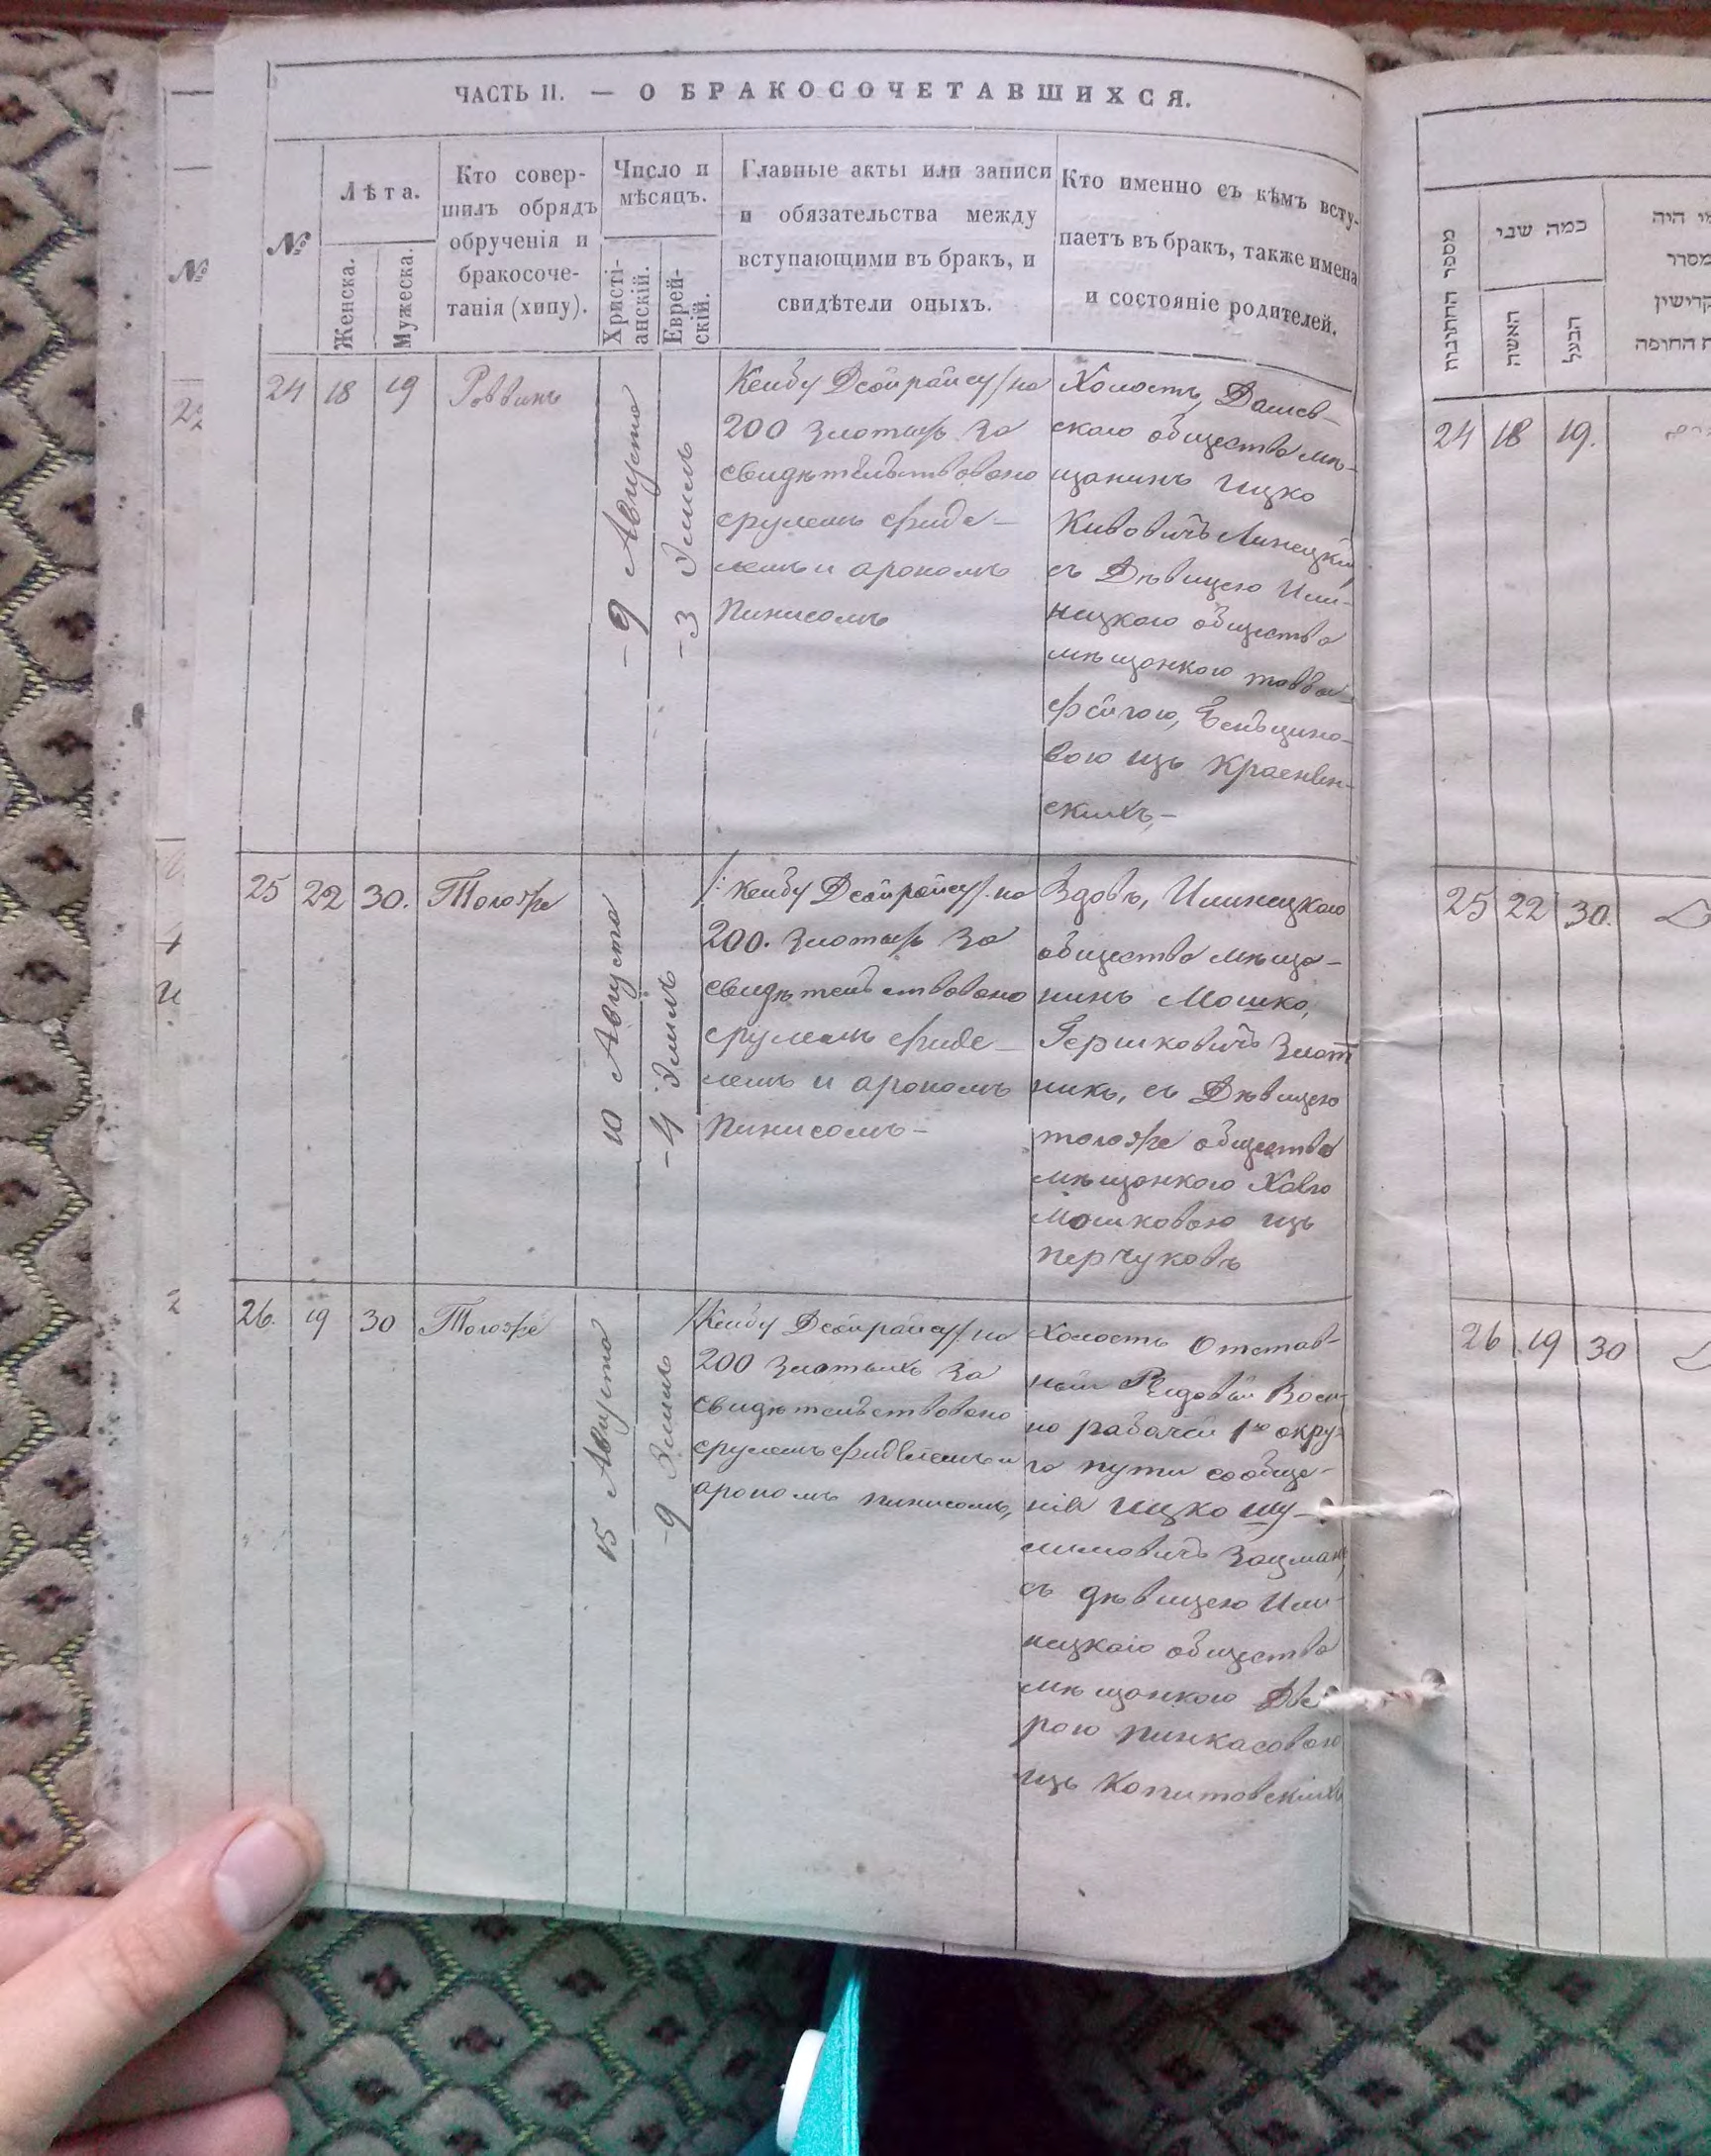 ЧАСТЬ II. — О БРАКОСОЧЕТАВШИХСЯ.
№
Лѣта.
Женска.
Мужеска.
Кто совер-
шилъ обрядъ
обрученія и
бракосоче-
танія (хипу).
Число и
мѣсяцъ.
Христі-
анскій.
Еврей-
скій.
Главные акты или записи
и обязательства между
вступающими въ бракъ, и
свидѣтели оныхъ.
Кто именно съ кѣмъ всту-
паетъ въ бракъ, также имена
и состояніе родителей.
24
18
19
Раввинъ
9 Августа
3
на
200 злотыхъ за
свидѣтельствовано
сруле​мъ фиде-
лемъ и арономъ
Пинисомъ
Холостъ, Дашев-
скаго общества мѣ-
щанинъ Ицко
Кивовичъ Линецкій
съ Дѣвицею Или-
нецкаго общества
мѣщанкою
фейгою,
вою изъ
скихъ,-
25
22
30.
Тогоже
10 Августа
4
на
200. злотыхъ за
свидѣтельствовано
срулемъ фиде-
лемъ и арономъ
Пинисомъ-
Вдовъ, Илинецкаго
общества мѣща-
нинъ Мошко,
Гершковичъ Злот
никъ, съ Дѣвицею
тогоже общества
мѣщанкою Хавою
Мошковою изъ
перчуковъ
26.
19
30
Тогоже
15 Августа
9
на
200 злотыхъ за
свидѣтельствовано
срулемъ фиделемъ и
арономъ пинисомъ,
Холостъ Отстав-
ной Рядовой Воен-
но рабочей 1го окру-
га пути сообще-
нія Ицко Шу-
лимовичъ Зацман
съ дѣвицею Или-
нецкаго общества
мѣщанкою Дво
рою пинкасовою
изъ Копитовскихъ
№
מספר החתונות
כמה שני
האשה
הבעל
מי היה
מסדר
קדושין
החופה
24
18
19.
25
22
30.
26
19
30